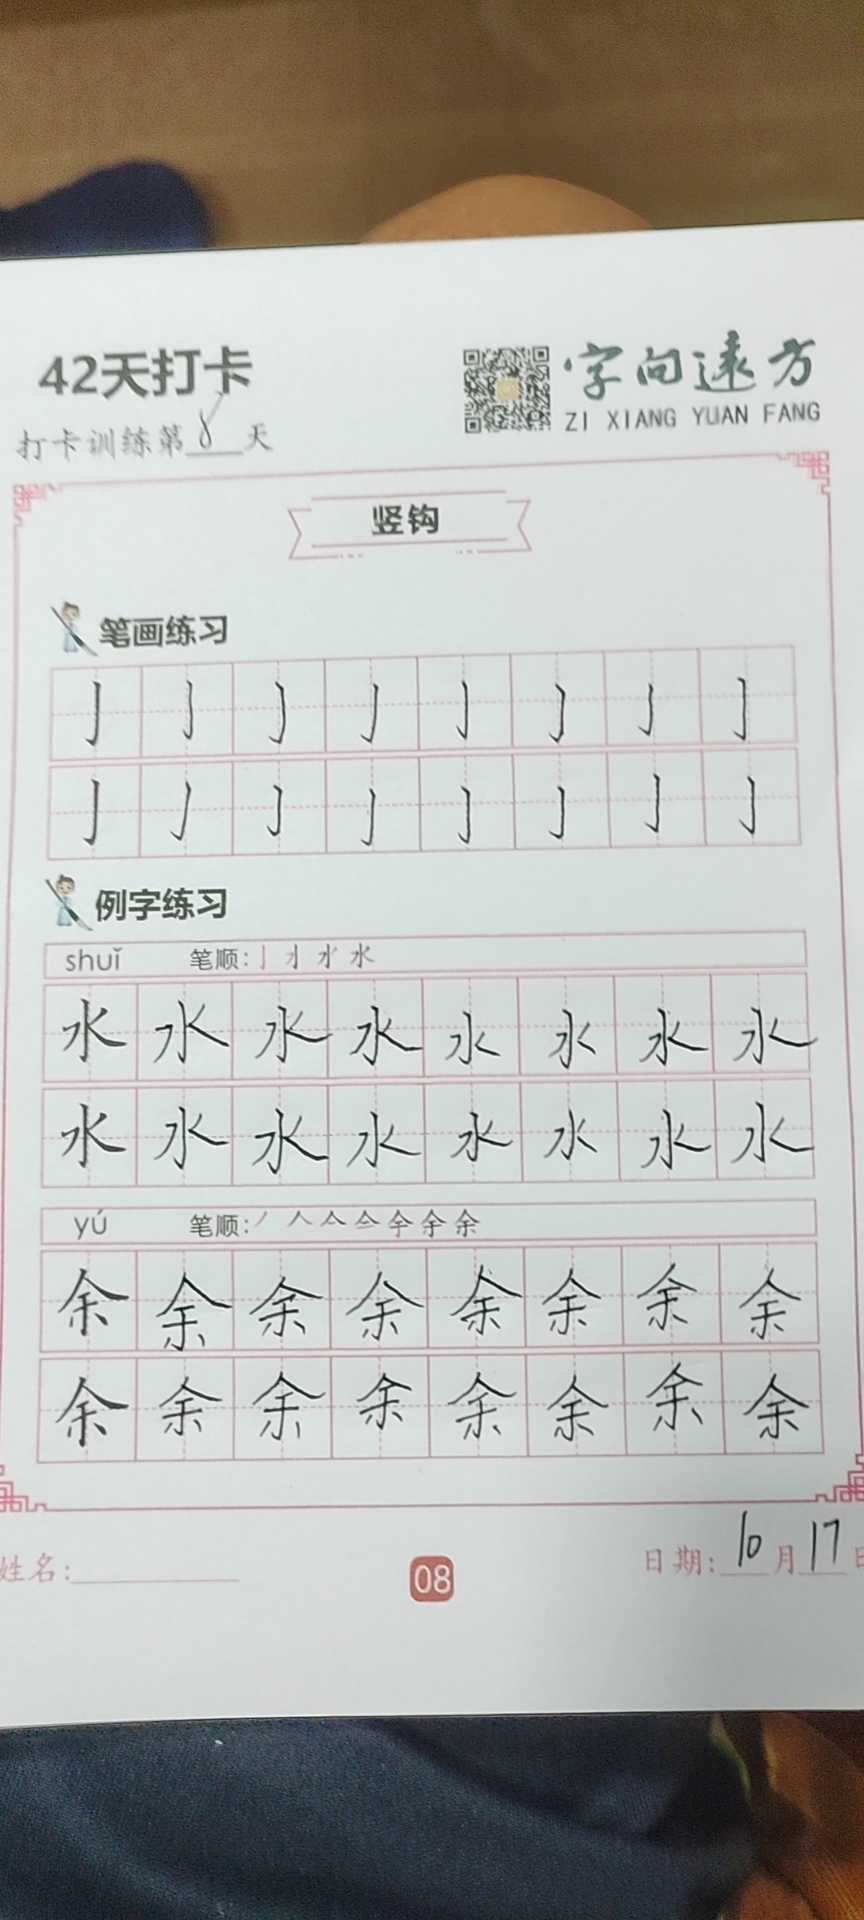 42天打卡
字向远方
ZI XIANG YUAN FANG
打卡训练第8天
竖钩
笔画练习
亅亅亅亅亅亅亅亅
亅亅亅亅亅亅亅亅
例字练习
shuǐ 笔顺:
水水水水水水水水
水水水水水水水水
yú 笔顺:
余余余余余余余余
余余余余余余余余
姓名:
08
日期:10月17日